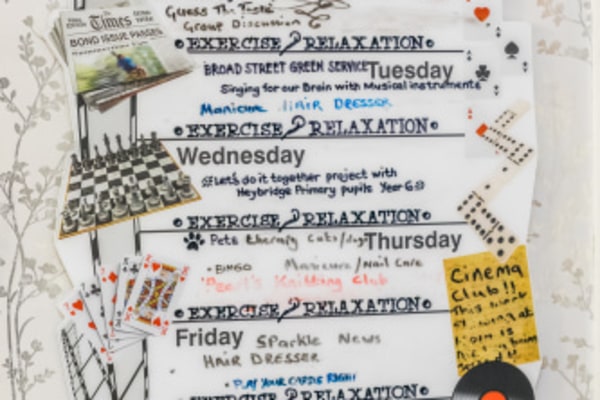 The Times
BOND ISSUE PASSES
Guess The Taste
Group Discussion
EXERCISE RELAXATION
BROAD STREET GREEN SERVICE Tuesday
Singing for our Brain with Musical instruments
Manicure HAIR DRESSER
EXERCISE RELAXATION
Wednesday
Let's do it together project with
Heybridge Primary pupils Year 6
EXERCISE RELAXATION
Pets therapy Cats/dogs Thursday
BINGO Manicure/Nail Care
Pearl's Knitting Club
EXERCISE RELAXATION
Cinema
Club!!
This
at
is
Friday Sparkle News
HAIR DRESSER
PLAY YOUR CARDS RIGHT
EXERCISE RELAXATION